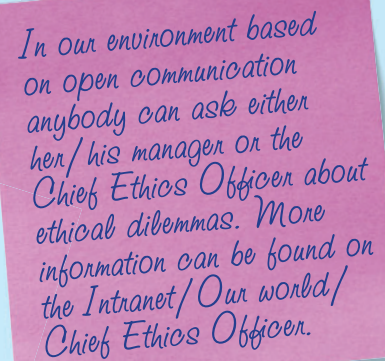 In our environment based
on open communication
anybody can ask either
her/his manager or the
Chief Ethics Officer about
ethical dilemmas. More
information can be found on
the Intranet/Our world/
Chief Ethics Officer.